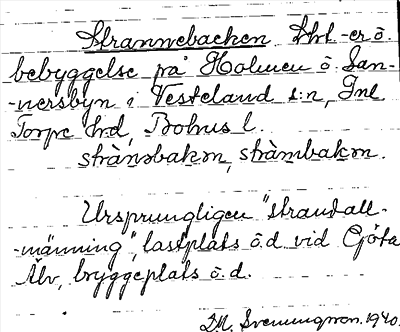 Strannebacken Skt.-er ö.
bebyggelse på Holmen ö. San-
-nersbyn i Vesteland s:n, Inl
Torpe hrd, Bohus l.
strànəbakən, stràmbakən.
Ursprungligen "strandall-
-männing", lastplats ö.d. vid Göta
Älv, bryggeplats ö.d.
M. Svenungson. 1940.